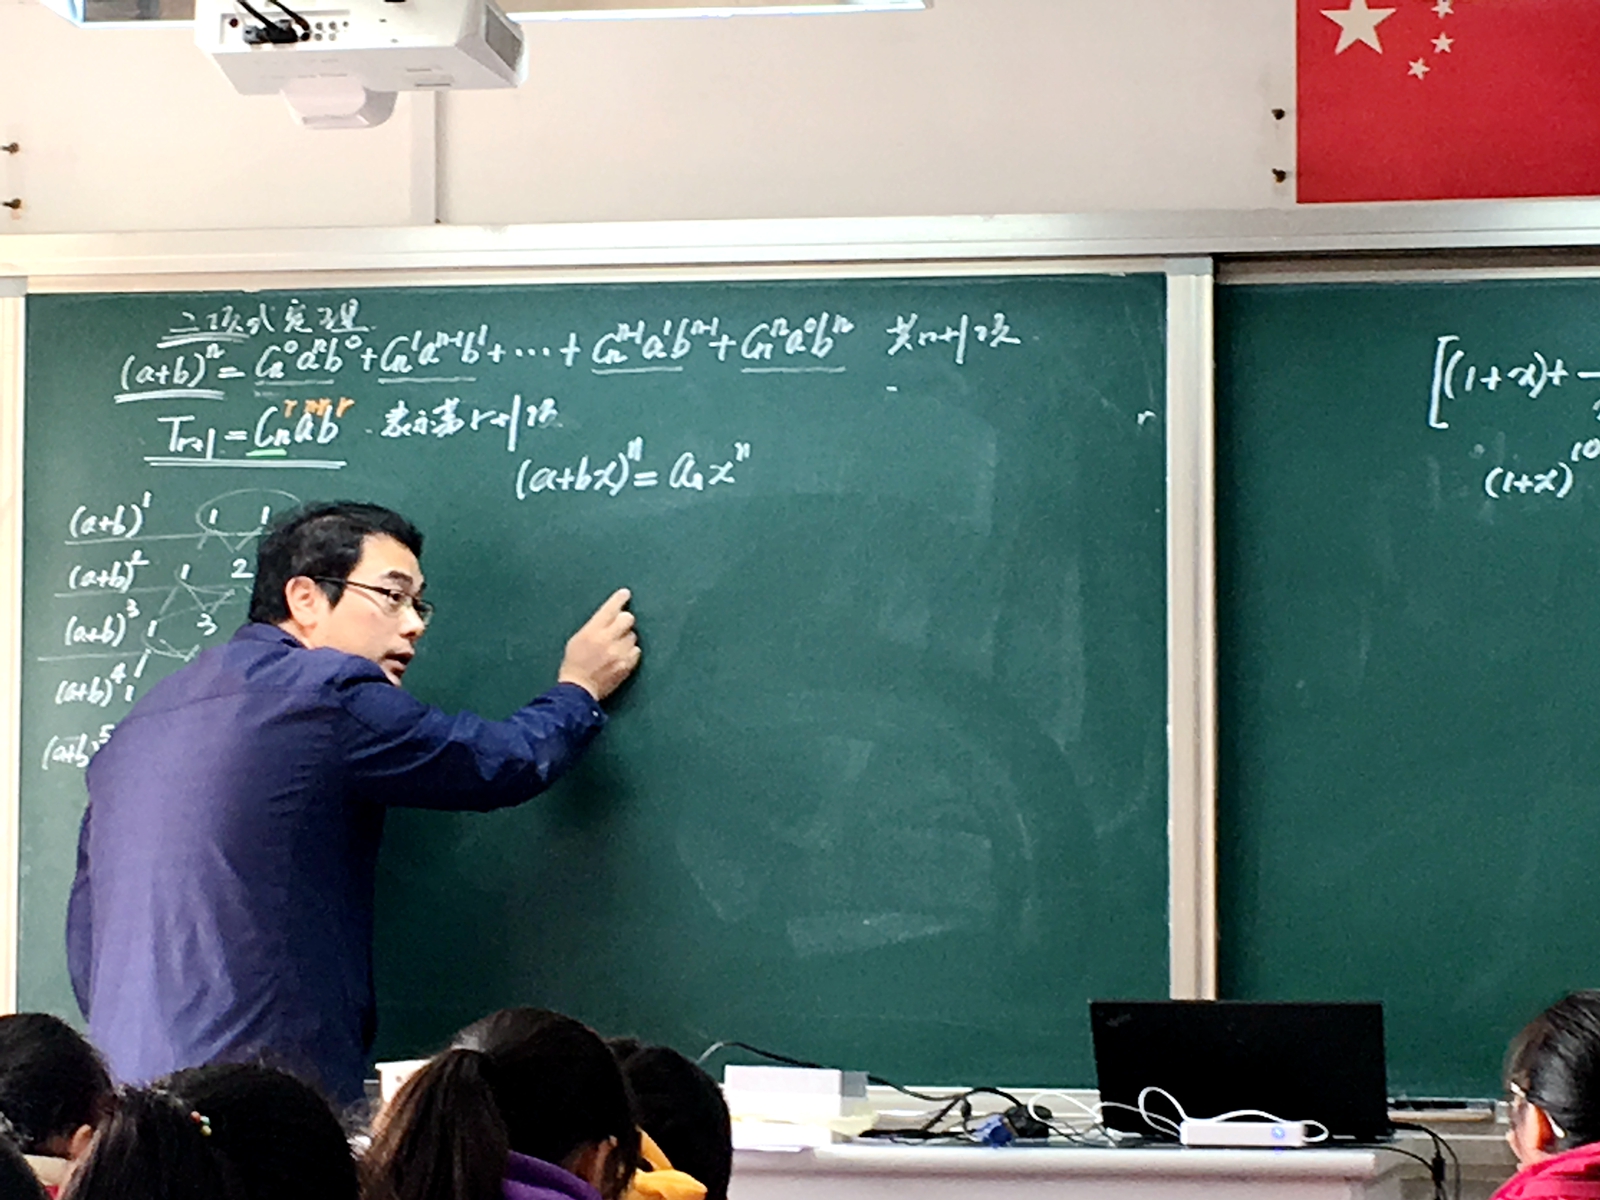 二项式定理
(a+b)^n = C_n^0 a^n b^0 + C_n^1 a^{n-1} b^1 + ··· + C_n^{n-1} a^1 b^{n-1} + C_n^n a^0 b^n 共n+1项
T_{r+1} = C_n^r a^{n-r} b^r 表示第r+1项
(a+bx)^n = a_n x^n
(a+b)^1 1 1
(a+b)^2 1 2
(a+b)^3 1 3
(a+b)^4 1
(a+b)^5
[(1+x)+
(1+x)^10